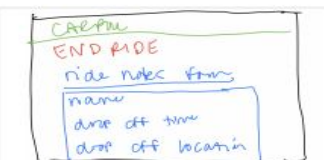 CARPOOL
END RIDE
ride notes form
name
drop off time
drop off location